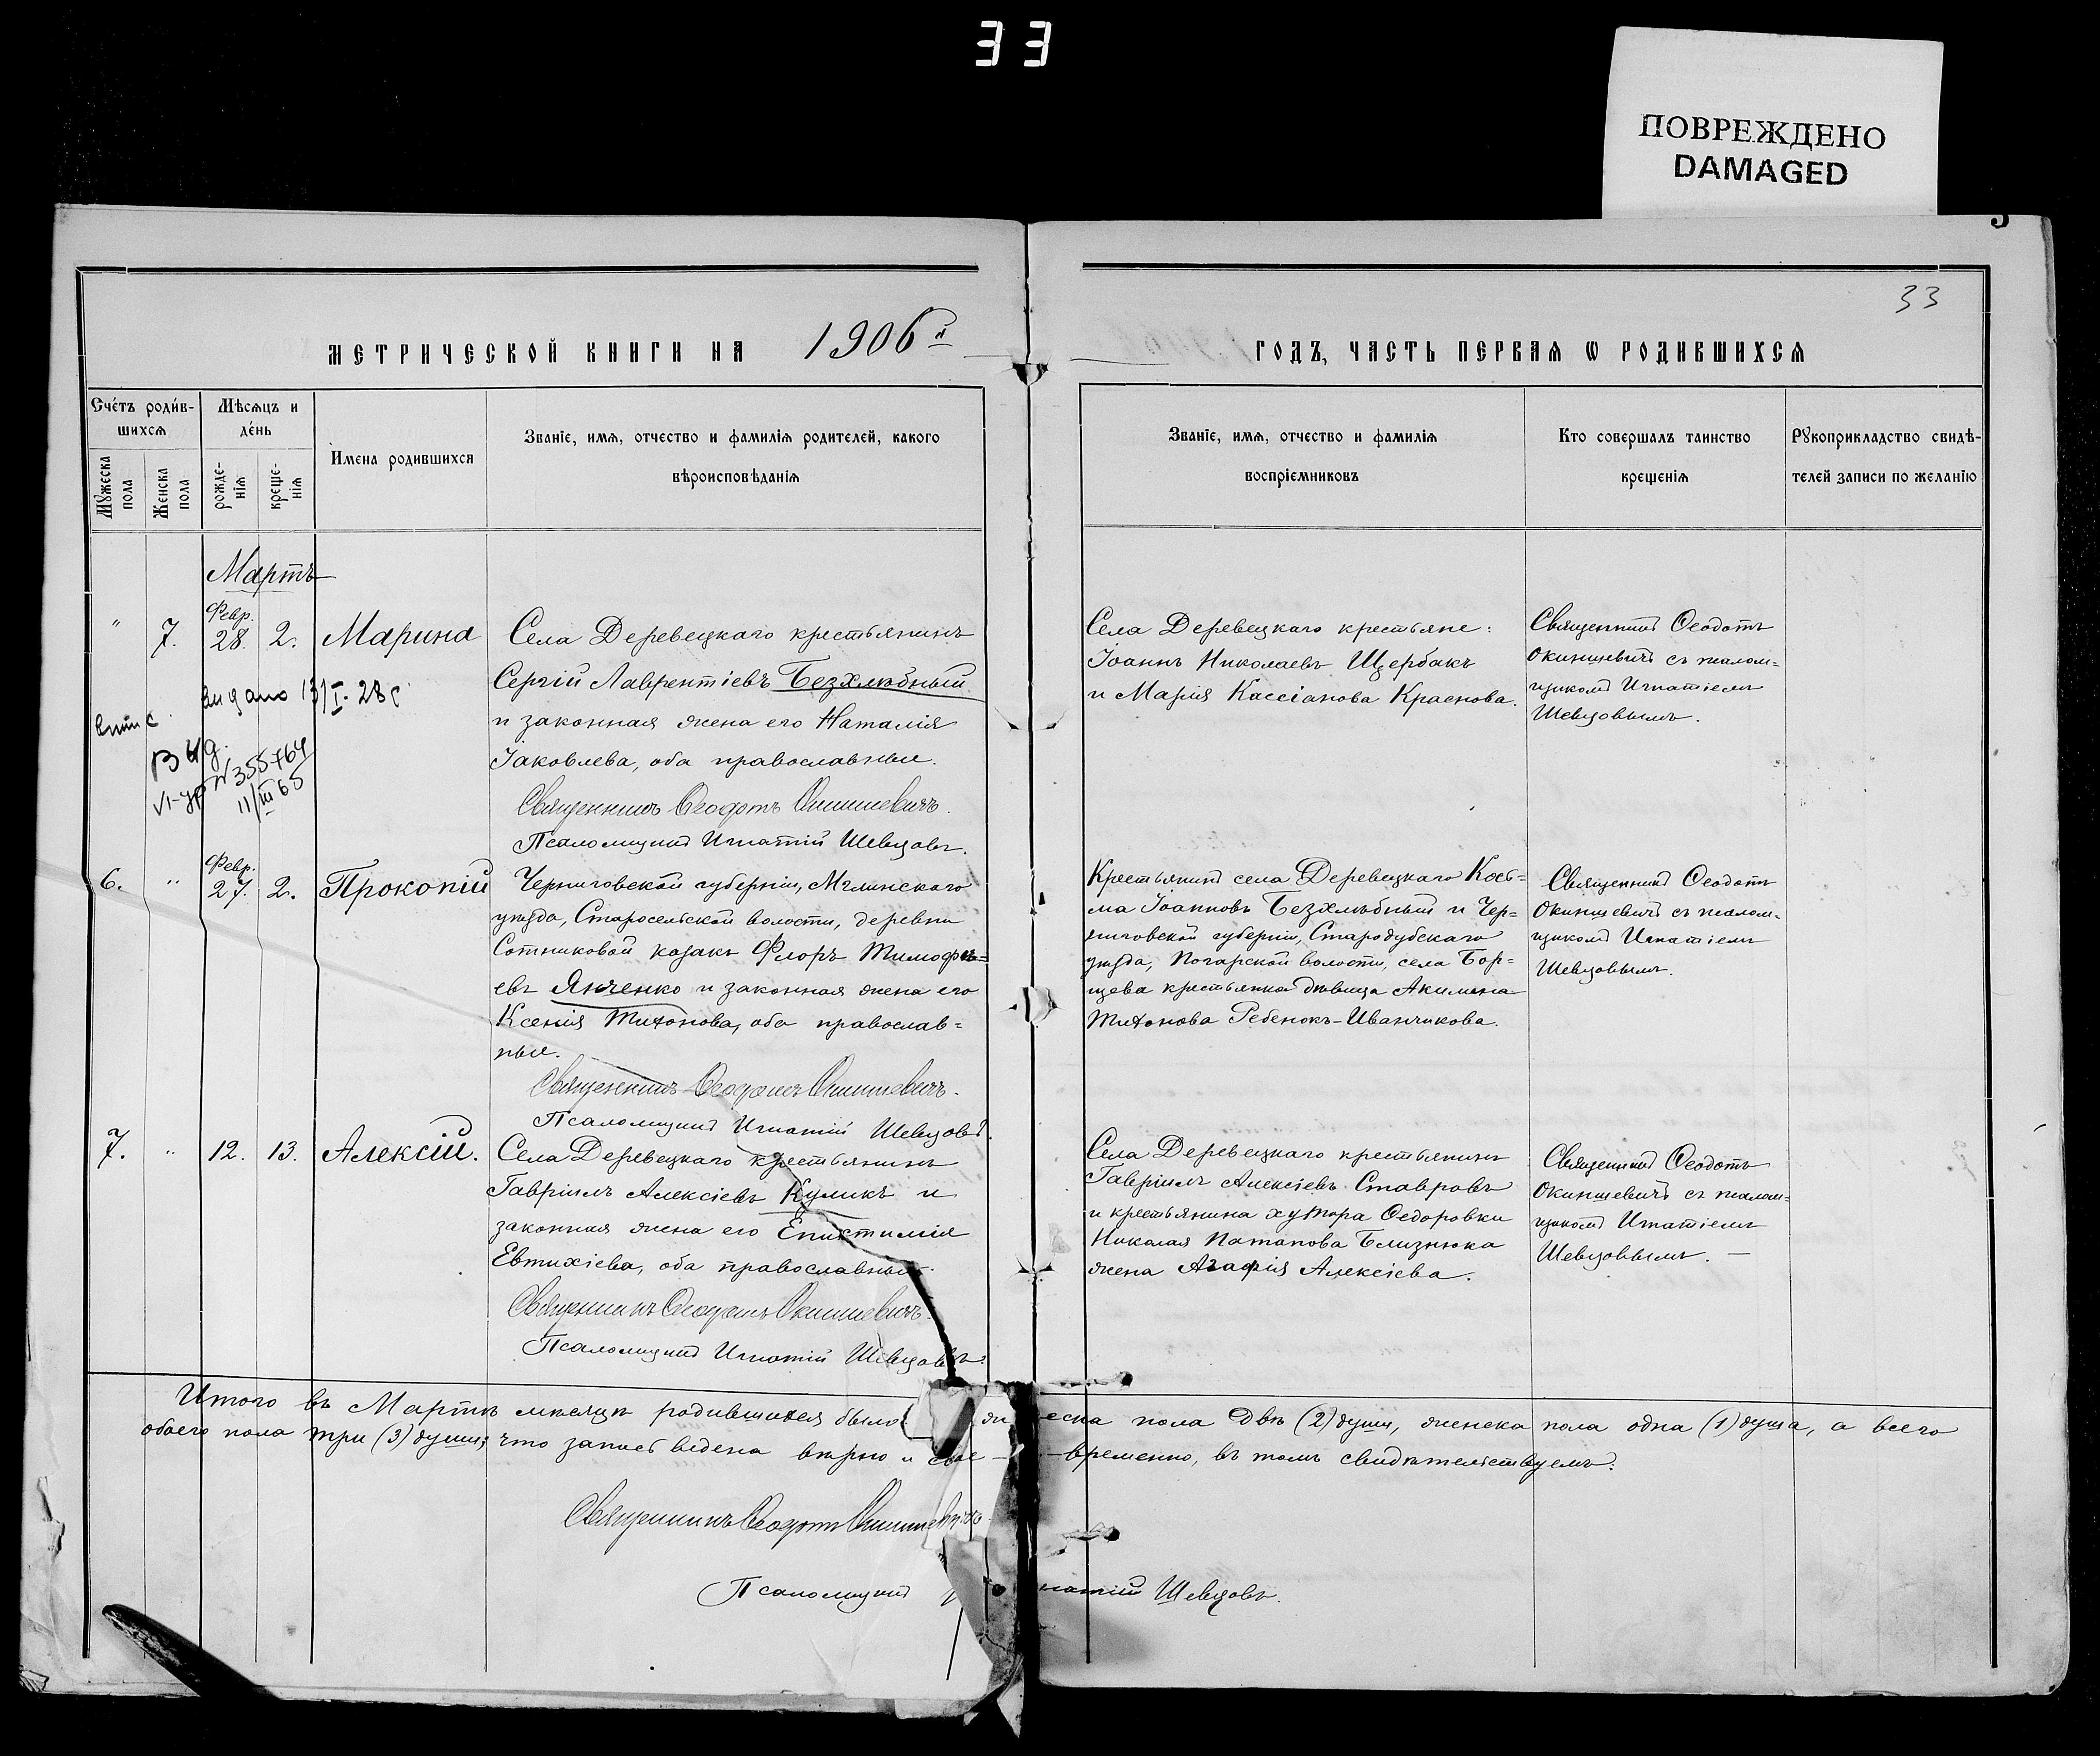 33
ПОВРЕЖДЕНО
DAMAGED
33
МЕТРИЧЕСКОЙ КНИГИ НА 1906й
ГОДЪ, ЧАСТЬ ПЕРВАЯ Ѡ РОДИВШИХСЯ
Счетъ родив-
шихся
Мужеска пола
Женска пола
Мѣсяцъ и
день
рожде-
нія
креще-
нія
Имена родившихся
Званіе, имя, отчество и фамилія родителей, какого
вѣроисповѣданія
Званіе, имя, отчество и фамилія
воспріемниковъ
Кто совершалъ таинство
крещенія
Рукоприкладство свидѣ-
телей записи по желанію
Мартъ
" 7. Февр. 28. 2. Марина
Села Деревецкаго крестьянинъ
Сергій Лаврентіевъ Безхлѣбный
и законная жена его Наталія
Іаковлева, оба православные.
Священникъ Ѳеодотъ Окиншевичъ.
Псаломщикъ Игнатій Шевцовъ.
Села Деревецкаго крестьяне:
Іоаннъ Николаевъ Щербакъ
и Марія Кассіанова Краснова.
Священникъ Ѳеодотъ
Окиншевичъ съ псалом=
щикомъ Игнатіемъ
Шевцовымъ.
выдано 13/I-28 с
№355764
11/III 65
6. " Февр. 27. 2. Прокопій
Черниговской губерніи, Мглинскаго
уѣзда, Старосельской волости, деревни
Сотниковой козакъ Флоръ Тимофѣ=
евъ Янченко и законная жена его
Ксенія Тихонова, оба православ=
ные.
Священникъ Ѳеодотъ Окиншевичъ.
Псаломщикъ Игнатій Шевцовъ.
Крестьянинъ села Деревецкаго Кось=
ма Іоанновъ Безхлѣбный и Чер=
ниговской губерніи, Стародубскаго
уѣзда, Погарской волости, села Бор=
щева крестьянка дѣвица Акилина
Тихонова Ребенокъ-Иванчикова.
Священникъ Ѳеодотъ
Окиншевичъ съ псалом=
щикомъ Игнатіемъ
Шевцовымъ.
7. " 12. 13. Алексій.
Села Деревецкаго крестьянинъ
Гавріилъ Алексіевъ Куликъ и
законная жена его Епистимія
Евтихіева, оба православные.
Священникъ Ѳеодотъ Окиншевичъ.
Псаломщикъ Игнатій Шевцовъ.
Села Деревецкаго крестьянинъ
Гавріилъ Алексіевъ Ставровъ
и крестьянина хутора Ѳедоровки
Николая Потапова Близнюка
жена Агафія Алексіева.
Священникъ Ѳеодотъ
Окиншевичъ съ псалом=
щикомъ Игнатіемъ
Шевцовымъ. —
Итого въ Мартѣ мѣсяцѣ родившихся было еска пола двѣ (2) души, женска пола одна (1) душа, а всего
обоего пола три (3) души; что запись ведена вѣрно и свое-временно, въ томъ свидѣтельствуемъ:
Священникъ Ѳеодотъ Окиншевичъ
Псаломщикъ И натій Шевцовъ.